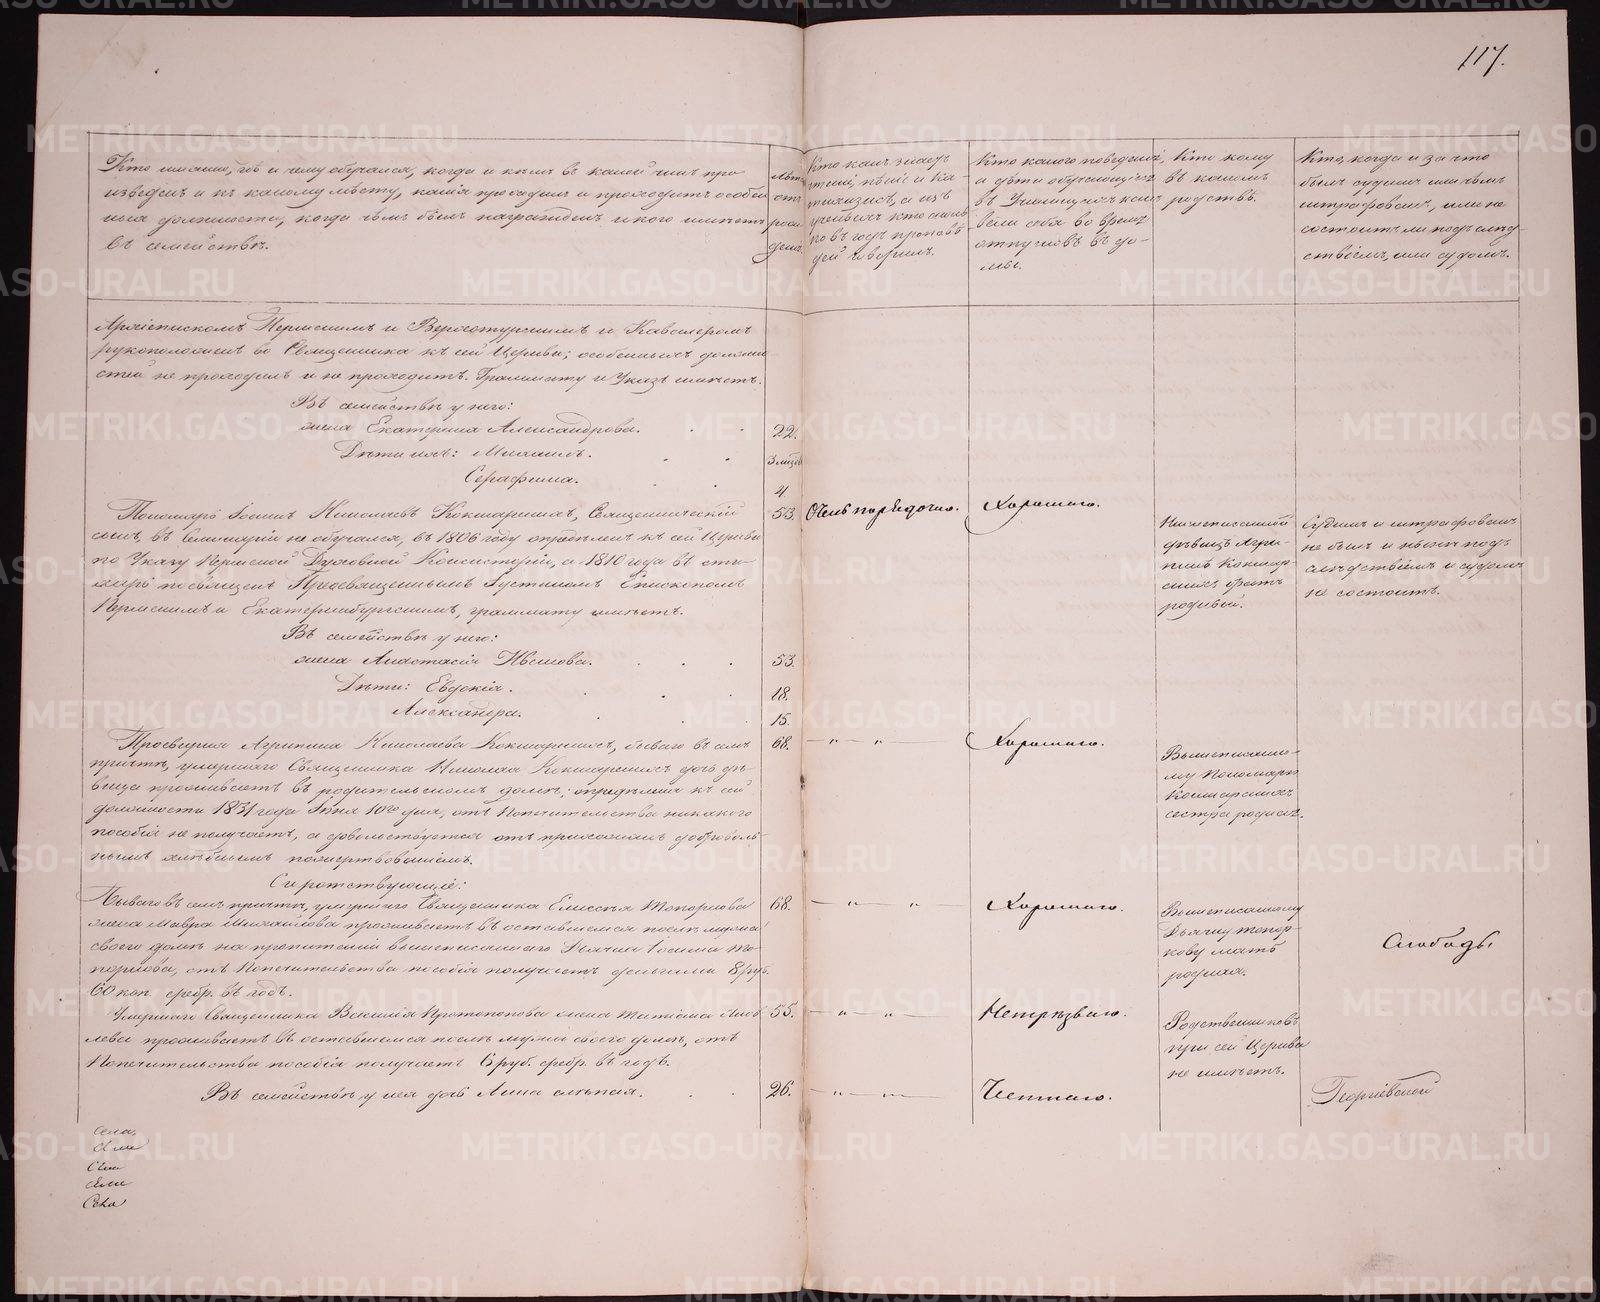 117.
Кто именно, где и чему обучался, когда и кѣмъ въ какой чинъ про-
изведенъ и къ какому мѣсту, какія проходилъ и проходитъ особен
ныя должности, когда чѣмъ былъ награжденъ и кого имѣетъ
въ семействѣ.
Лѣта
отъ
рож
ден.
Кто какъ знаетъ
чтеніе, пѣніе и ка-
тихизисъ, а изъ
ученыхъ кто сколь
ко въ годъ проповѣ
дей говорилъ.
Кто какого поведенія,
и дѣти обучающіеся
въ Училищахъ какъ
вели себя во время
отпусковъ въ до-
мы.
Кто кому
въ какомъ
родствѣ.
Кто, когда и за что
былъ судимъ или чѣмъ
штрафованъ, или не
состоитъ ли подъ слѣд-
ствіемъ, или судомъ.
Архіепископомъ Пермскимъ и Верхотурскимъ и Кавалеромъ
рукоположенъ во Священника къ сей Церкви; особенныхъ должно
стей не проходилъ и не проходитъ. Граммату и Указъ имѣетъ.
Въ семействѣ у него:
жена Екатерина Александрова. 22.
Дѣти ихъ: Михаилъ. 3 мѣсяц
Серафима. 4.
Пономарь Іоаннъ Николаевъ Кокшарскихъ, Священнической
сынъ, въ Семинаріи не обучался, въ 1806 году опредѣленъ къ сей Церкви
по Указу Пермской Духовной Консисторіи, а 1810 года въ сти-
харь посвященъ Преосвященнымъ Іустиномъ Епископомъ
Пермскимъ и Екатеринбургскимъ, граммату имѣетъ.
53.
Очень порядочно.
Хорошаго.
Нижеписанной
дѣвицѣ Агри-
пинѣ Кокшар-
скихъ братъ
родный.
Судимъ и штрафованъ
не былъ и нынѣ подъ
слѣдствіемъ и судомъ
не состоитъ.
Въ семействѣ у него:
жена Анастасія Иванова. 53.
Дѣти: Евдокія. 18.
Александра. 15.
Просвирня Агрипина Николаева Кокшарскихъ, бываго въ семъ
причтѣ, умершаго Священника Николая Кокшарскихъ дочь дѣ-
вица проживаетъ въ родительскомъ домѣ; опредѣлена къ сей
должности 1831 года Іюня 10го дня, отъ Попечительства никакого
пособія не получаетъ, а довольствуется отъ прихожанъ доброволь-
нымъ хлѣбнымъ пожертвованіемъ.
68.
— " " —
Хорошаго.
Вышеписанно-
му Пономарю
Кокшарскихъ
сестра родная.
Сиротствующіе:
Бываго въ семъ причтѣ, умершаго Священника Елисея Топоркова
жена Мавра Михайлова проживаетъ въ оставшемся послѣ мужа
своего домѣ на пропитаніи вышеписаннаго Дьячка Іосифа То-
поркова, отъ Попечительства пособія получаетъ деньгами 8 руб.
60 коп. сребр. въ годъ.
68.
— " " —
Хорошаго.
Вышеписанному
Дьячку Топор-
кову мать
родная.
Слободы
Умершаго Священника Василія Протопопова жена Татіана Яков
лева проживаетъ въ оставшемся послѣ мужа своего домѣ, отъ
Попечительства пособія получаетъ 6 руб. сребр. въ годъ.
55.
— " " —
Нетрезваго.
Родственниковъ
при сей Церкви
не имѣетъ.
Въ семействѣ у нея дочь Анна слѣпая. 26.
— " " —
Честнаго.
Георгіевской